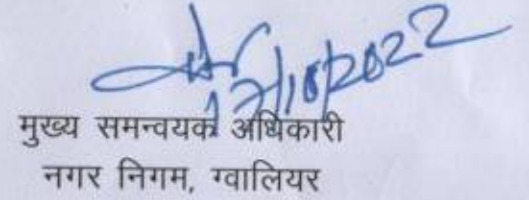 17/10/2022
मुख्य समन्वयक अधिकारी
नगर निगम, ग्वालियर